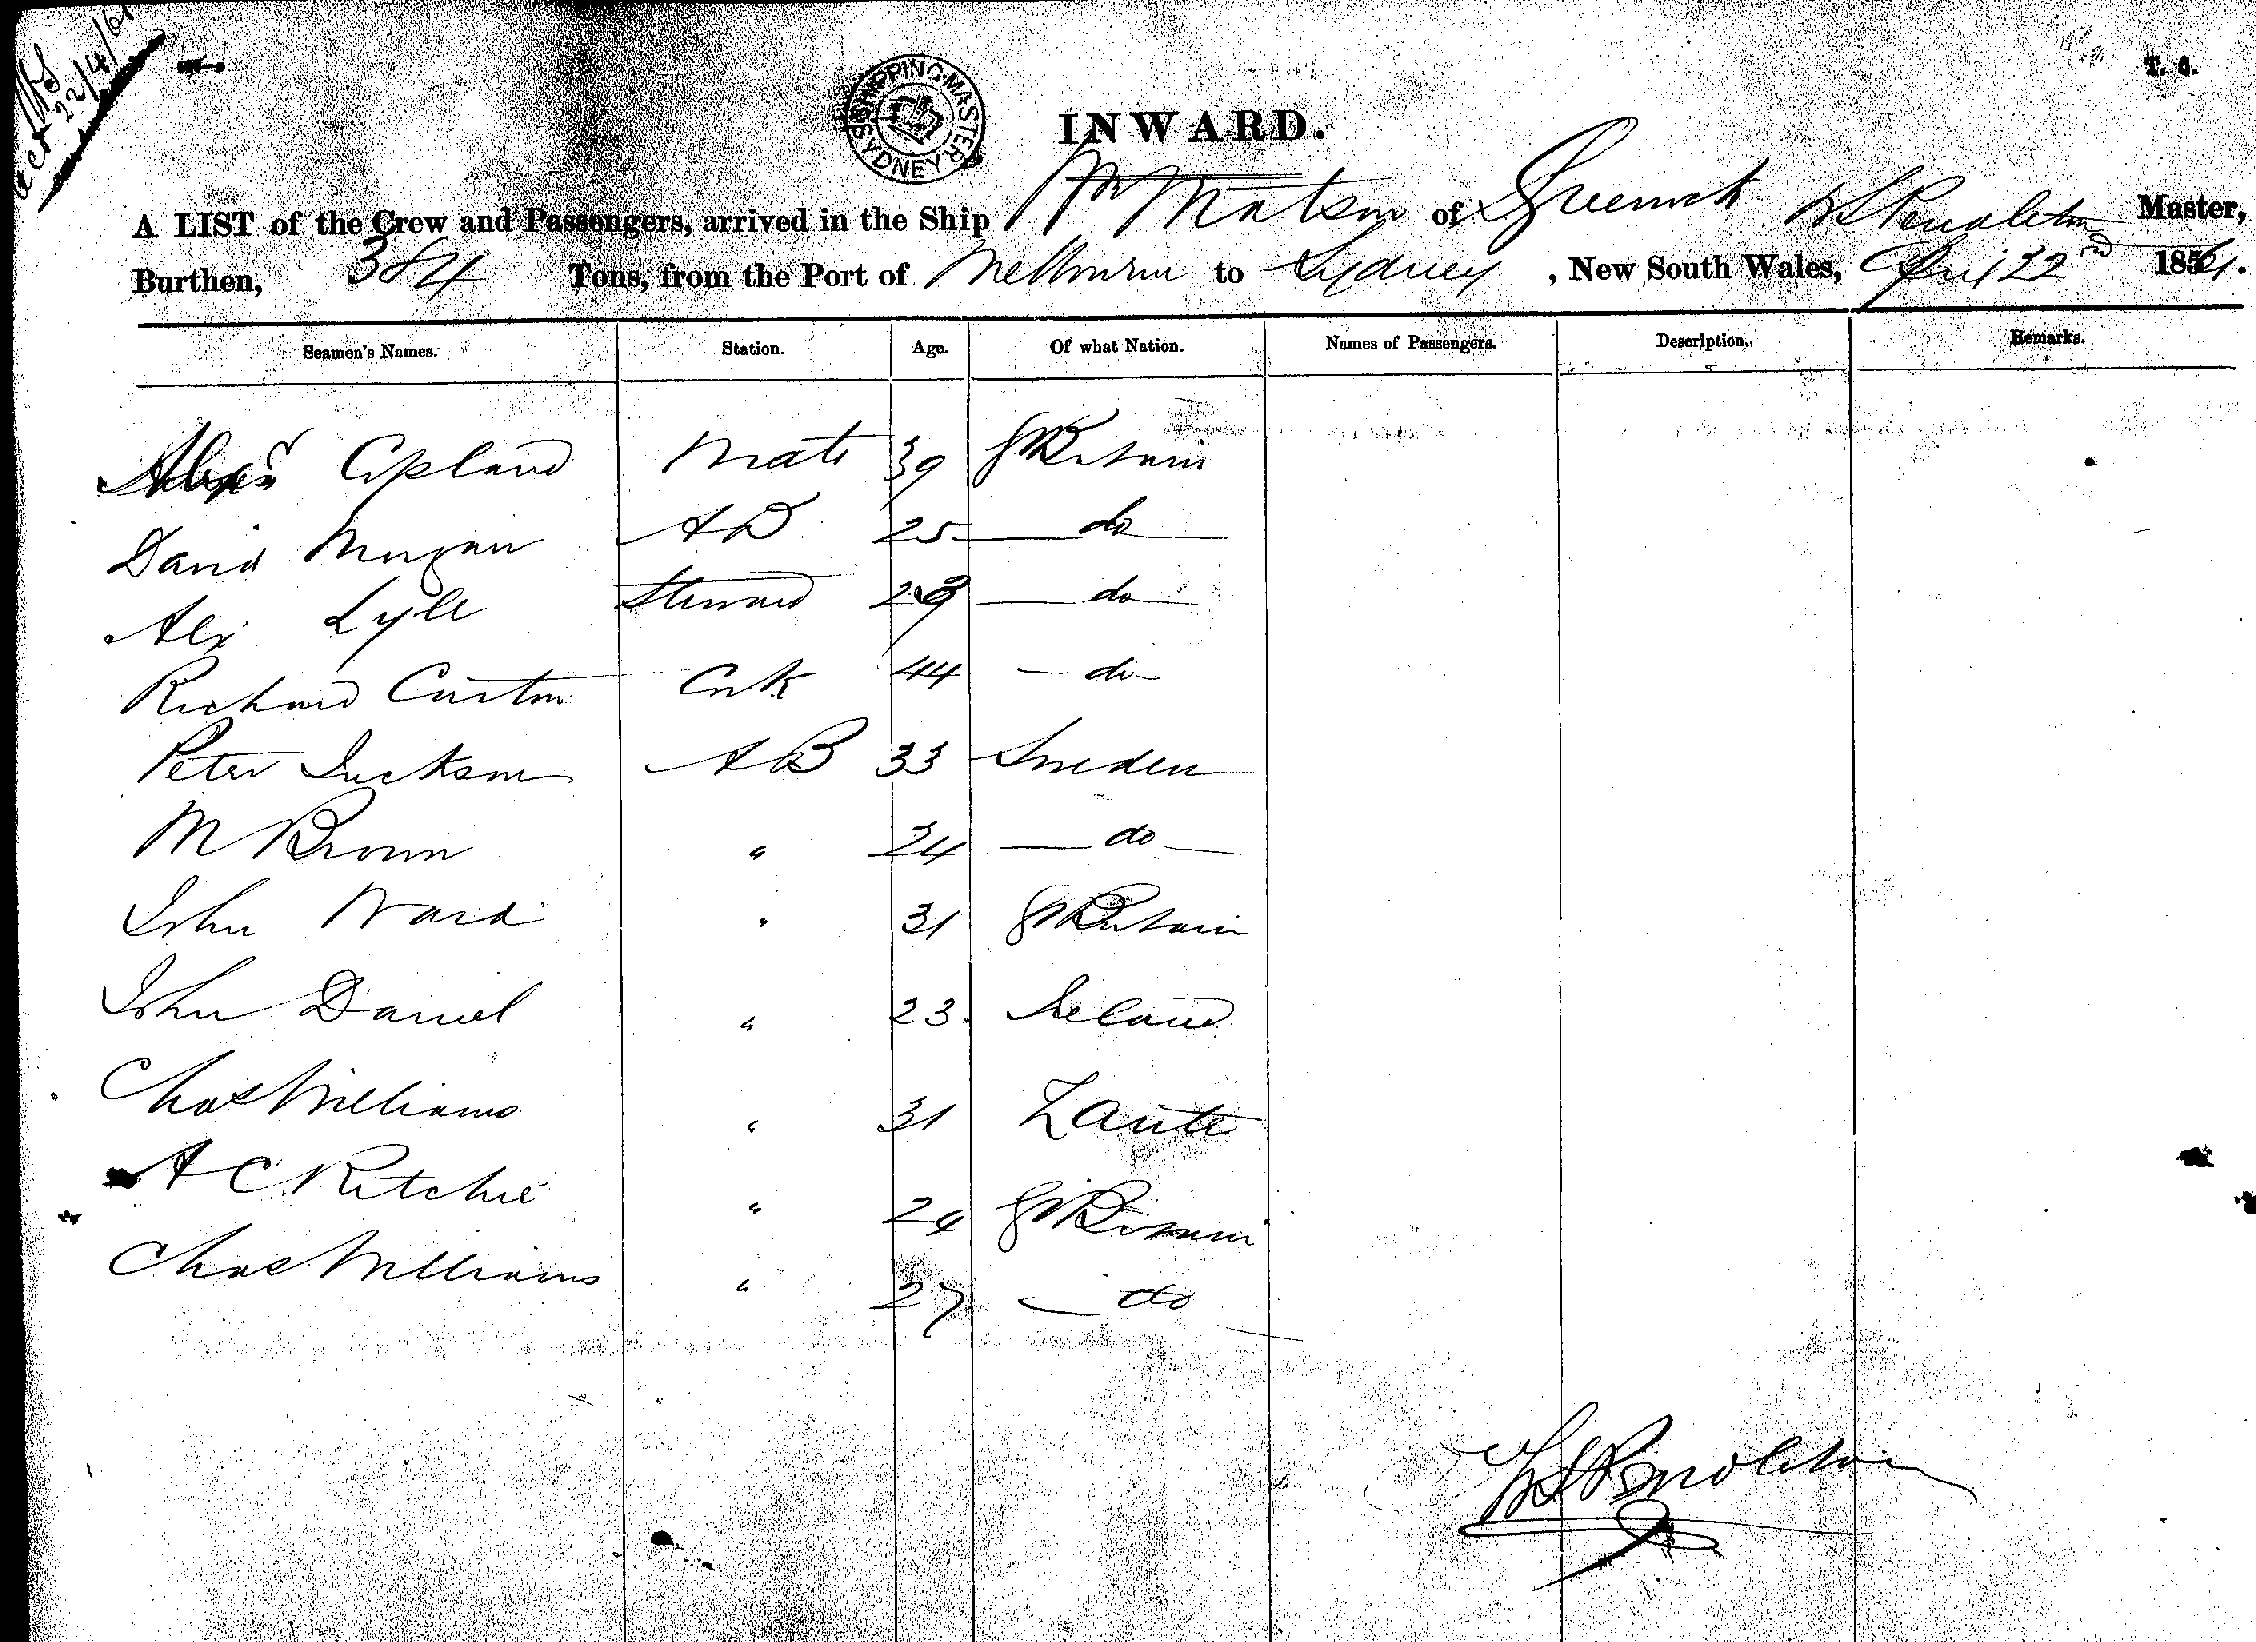 22/4/61
T. 6.
SHIPPING MASTER SYDNEY
INWARD.
A LIST of the Crew and Passengers, arrived in the Ship Wm Watson of Greenock W S Pendleton Master,
Burthen, 384 Tons, from the Port of Melbourne to Sydney, New South Wales, April 22nd 1861.
Seamen's Names. Station. Age. Of what Nation. Names of Passengers. Description. Remarks.
Alexr Copland Mate 39 Gt Britain
David Morgan AB 25 do
Alex Lyle Steward 29 do
Richard Curton Cook 44 do
Peter Jackson AB 33 Sweden
M Brown " 24 do
John Ward " 31 Gt Britain
John Daniel " 23 Ireland
Chas Williams " 31 Zante
A C Ritchie " 24 Gt Britain
Chas Williams " 27 do
W S Pendleton